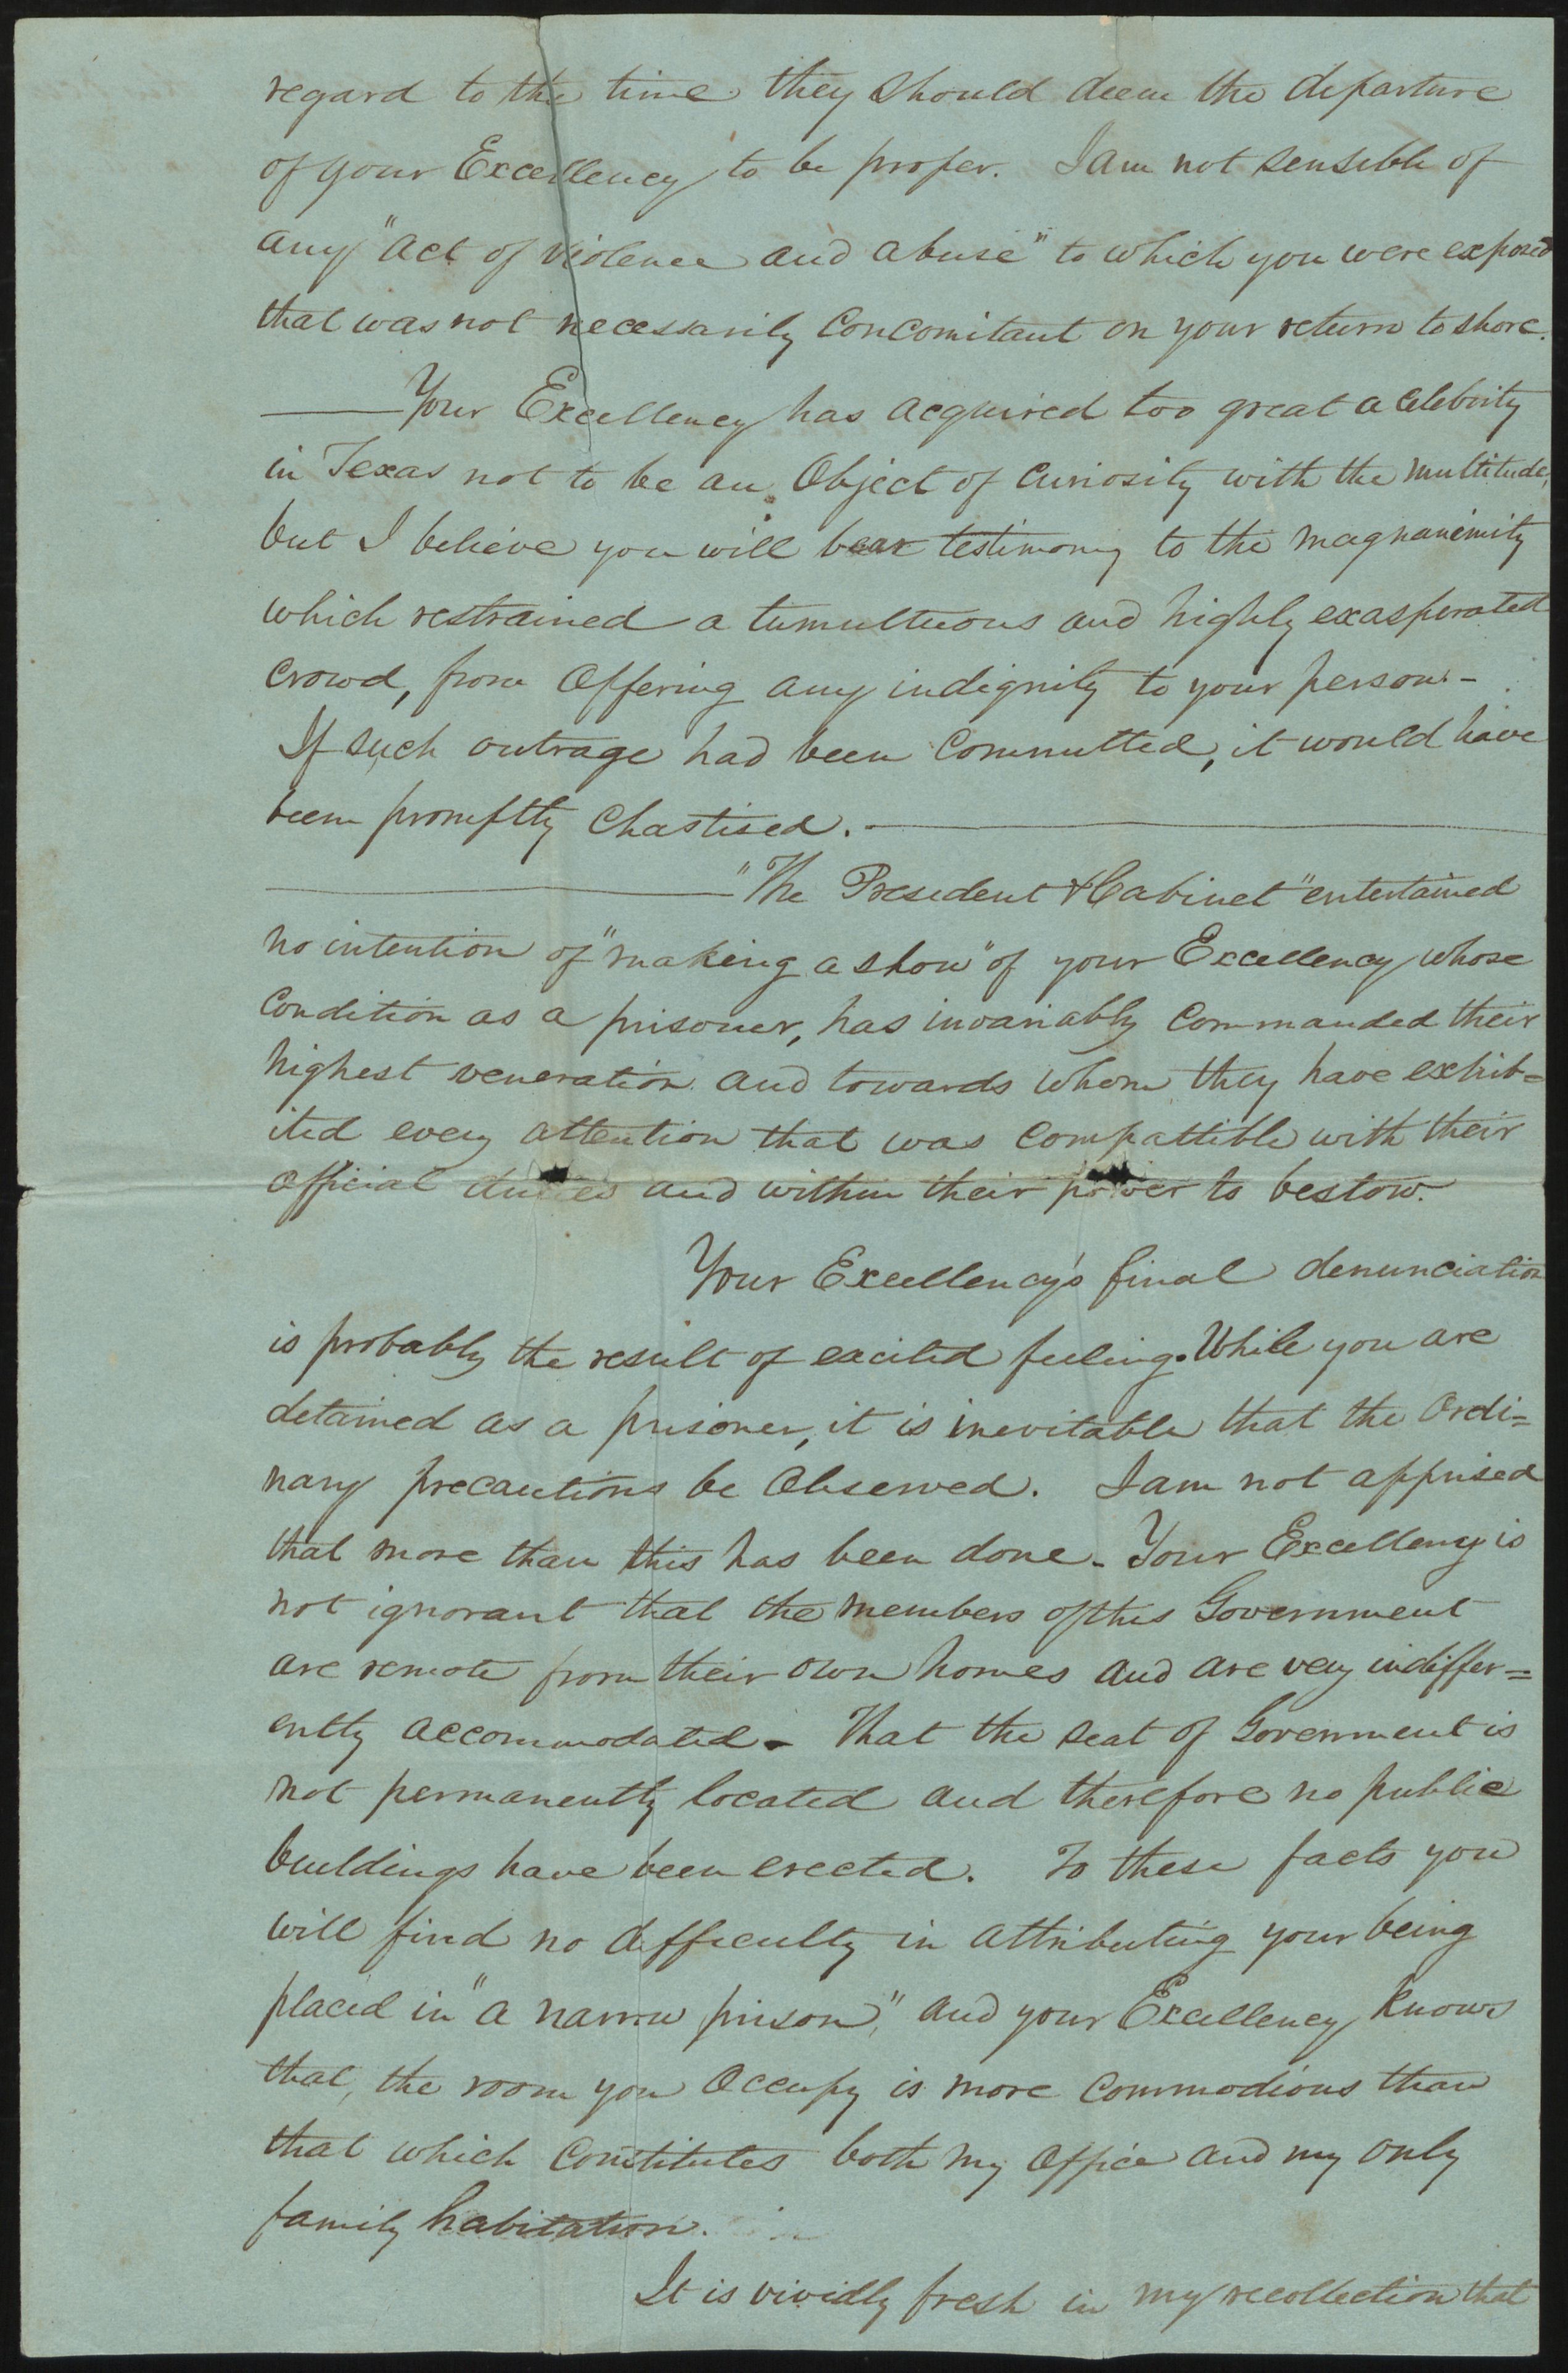 regard to the time they should deem the departure
of your Excellency to be proper. I am not sensible of
any "act of violence and abuse" to which you were exposed
that was not necessarily Concomitant on your return to shore.
Your Excellency has acquired too great a Celebrity
in Texas not to be an Object of Curiosity with the multitude,
but I believe you will bear testimony to the magnanimity
which restrained a tumultuous and highly exasperated
Crowd, from Offering any indignity to your person -
If such outrage had been Committed, it would have
been promptly Chastised. -
"The President & Cabinet" entertained
no intention of "making a show" of your Excellency whose
Condition as a prisoner, has invariably Commanded their
highest veneration and towards whom they have exhib=
ited every attention that was Compattible with their
Official duties and within their power to bestow.
Your Excellency's final denunciation
is probably the result of excited feeling. While you are
detained as a prisoner, it is inevitable that the Ordi=
nary precautions be Observed. I am not apprised
that more than this has been done - Your Excellency is
not ignorant that the members of this Government
are remote from their own homes and are very indiffer=
ently accommodated - That the seat of Government is
not permanently located and therefore no public
buildings have been erected. To these facts you
will find no difficulty in attributing your being
placed in "a narrow prison," and your Excellency knows
that, the room you Occupy is more Commodious than
that which Constitutes both my Office and my only
family habitation.
It is vividly fresh in my recollection that